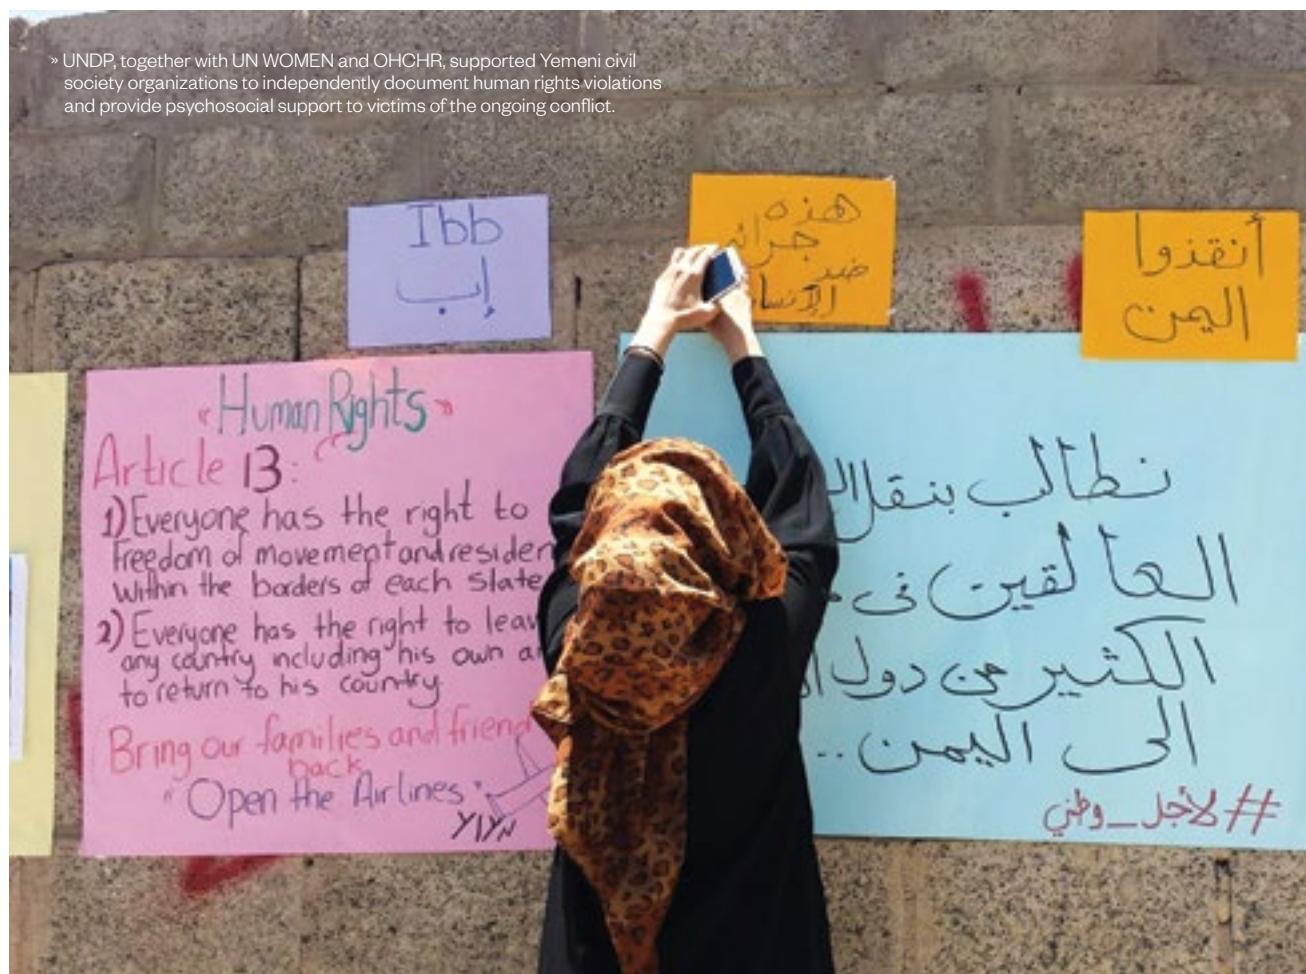 » UNDP, together with UN WOMEN and OHCHR, supported Yemeni civil
society organizations to independently document human rights violations
and provide psychosocial support to victims of the ongoing conflict.
Ibb
إب
هذه
ضد
أنقذوا
اليمن
"Human Rights"
Article 13:
1) Everyone has the right to
freedom of movement and residen
within the borders of each state
2) Everyone has the right to leav
any country including his own a
to return to his country
Bring our families and friend
back
"Open the Airlines"
نطالب بنقل
العالقين في
الكثير من دول
الى اليمن..
#لأجل_وطني